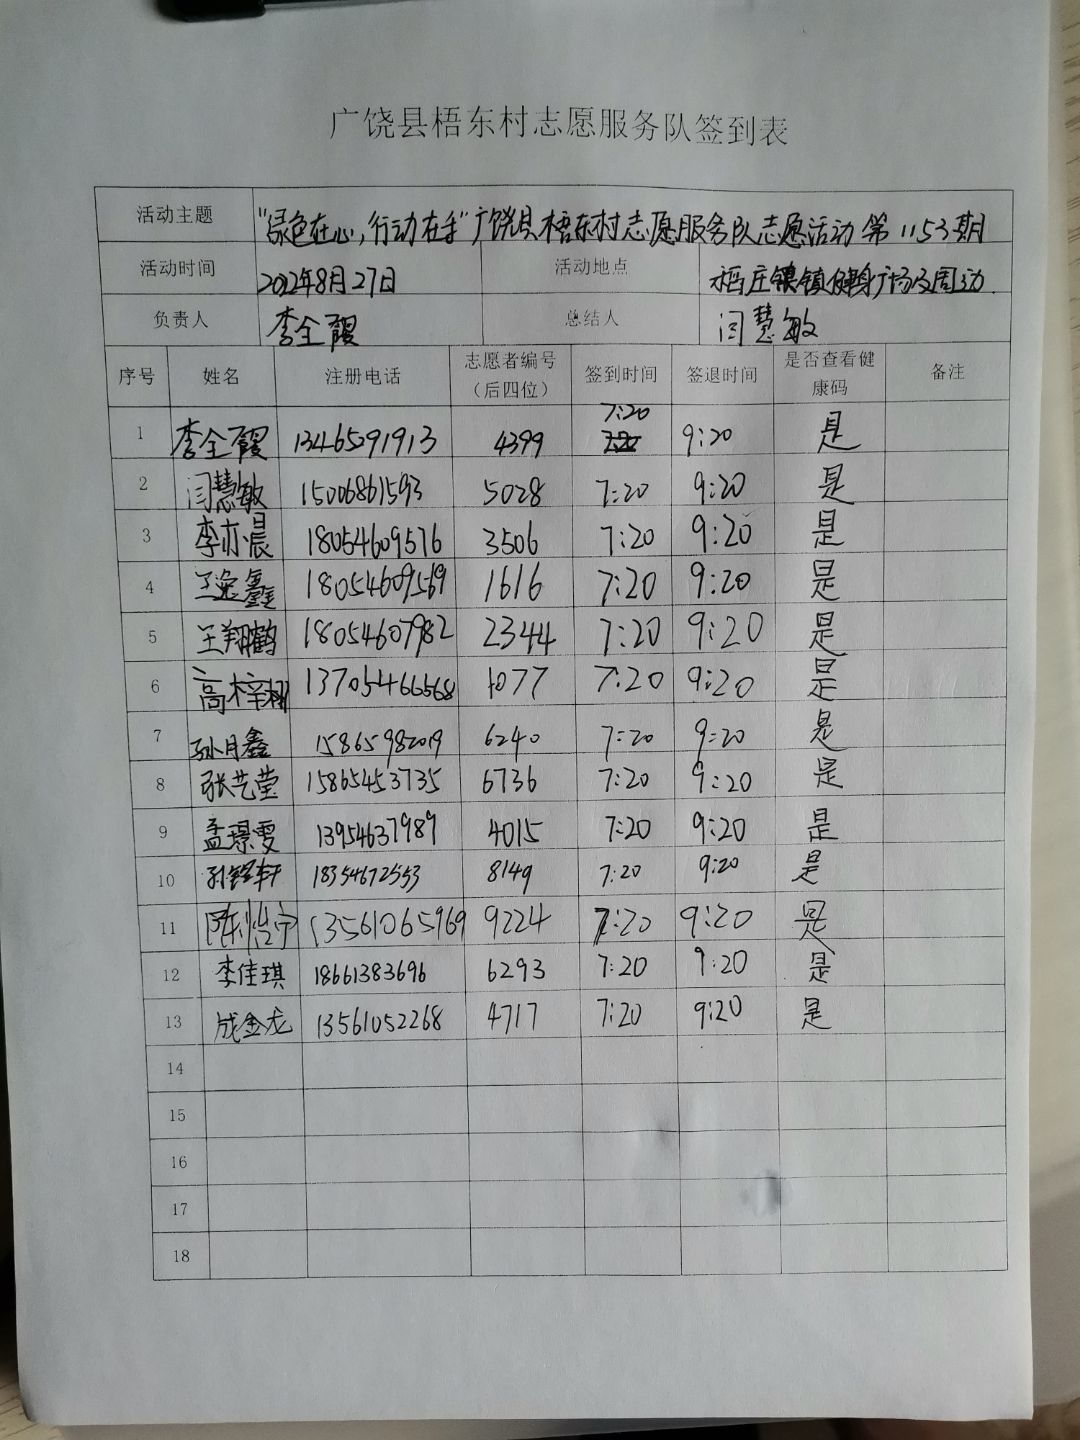 广饶县梧东村志愿服务队签到表
活动主题 "绿色在心,行动在手"广饶县梧东村志愿服务队志愿活动第1153期
活动时间 2022年8月27日 活动地点 稻庄镇镇健身广场及周边
负责人 李全霞 总结人 闫慧敏
序号 姓名 注册电话 志愿者编号(后四位) 签到时间 签退时间 是否查看健康码 备注
1 李全霞 13465291913 4399 7:20 9:20 是
2 闫慧敏 15006861593 5028 7:20 9:20 是
3 李亦晨 18054609576 3506 7:20 9:20 是
4 王逸鑫 18054609569 1616 7:20 9:20 是
5 王翔鹤 18054607982 2344 7:20 9:20 是
6 高梓栩 13705466568 1077 7:20 9:20 是
7 孙月鑫 15865982019 6240 7:20 9:20 是
8 张艺莹 15865453735 6736 7:20 9:20 是
9 孟璟雯 13954637989 4015 7:20 9:20 是
10 轩 18354672553 8149 7:20 9:20 是
11 陈怡宁 13561065969 9224 7:20 9:20 是
12 李佳琪 18661383696 6293 7:20 9:20 是
13 成金龙 13561052268 4717 7:20 9:20 是
14
15
16
17
18